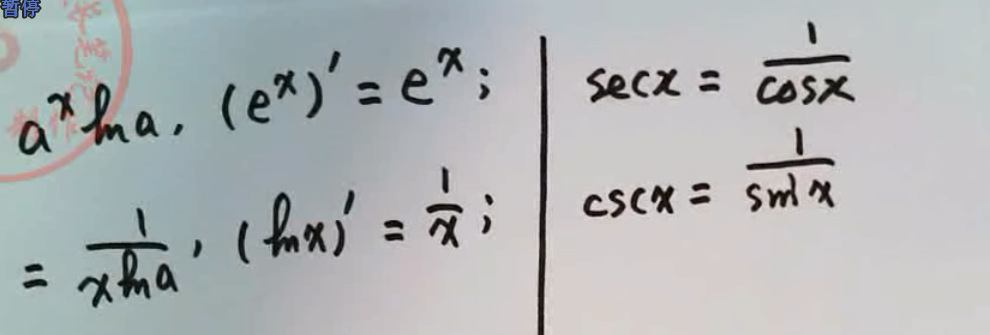 暂停
a^x ln a, (e^x)' = e^x;
= 1/(x ln a), (ln x)' = 1/x;
sec x = 1/cos x
csc x = 1/sin x